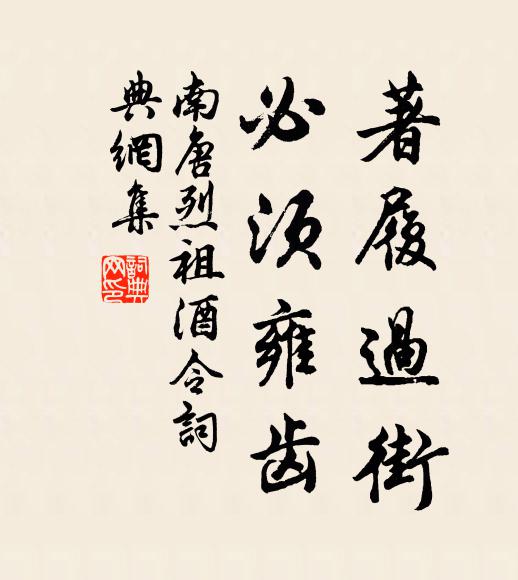 著履過街
必須雍齿
南唐烈祖酒令詞
典網集
詞典网印